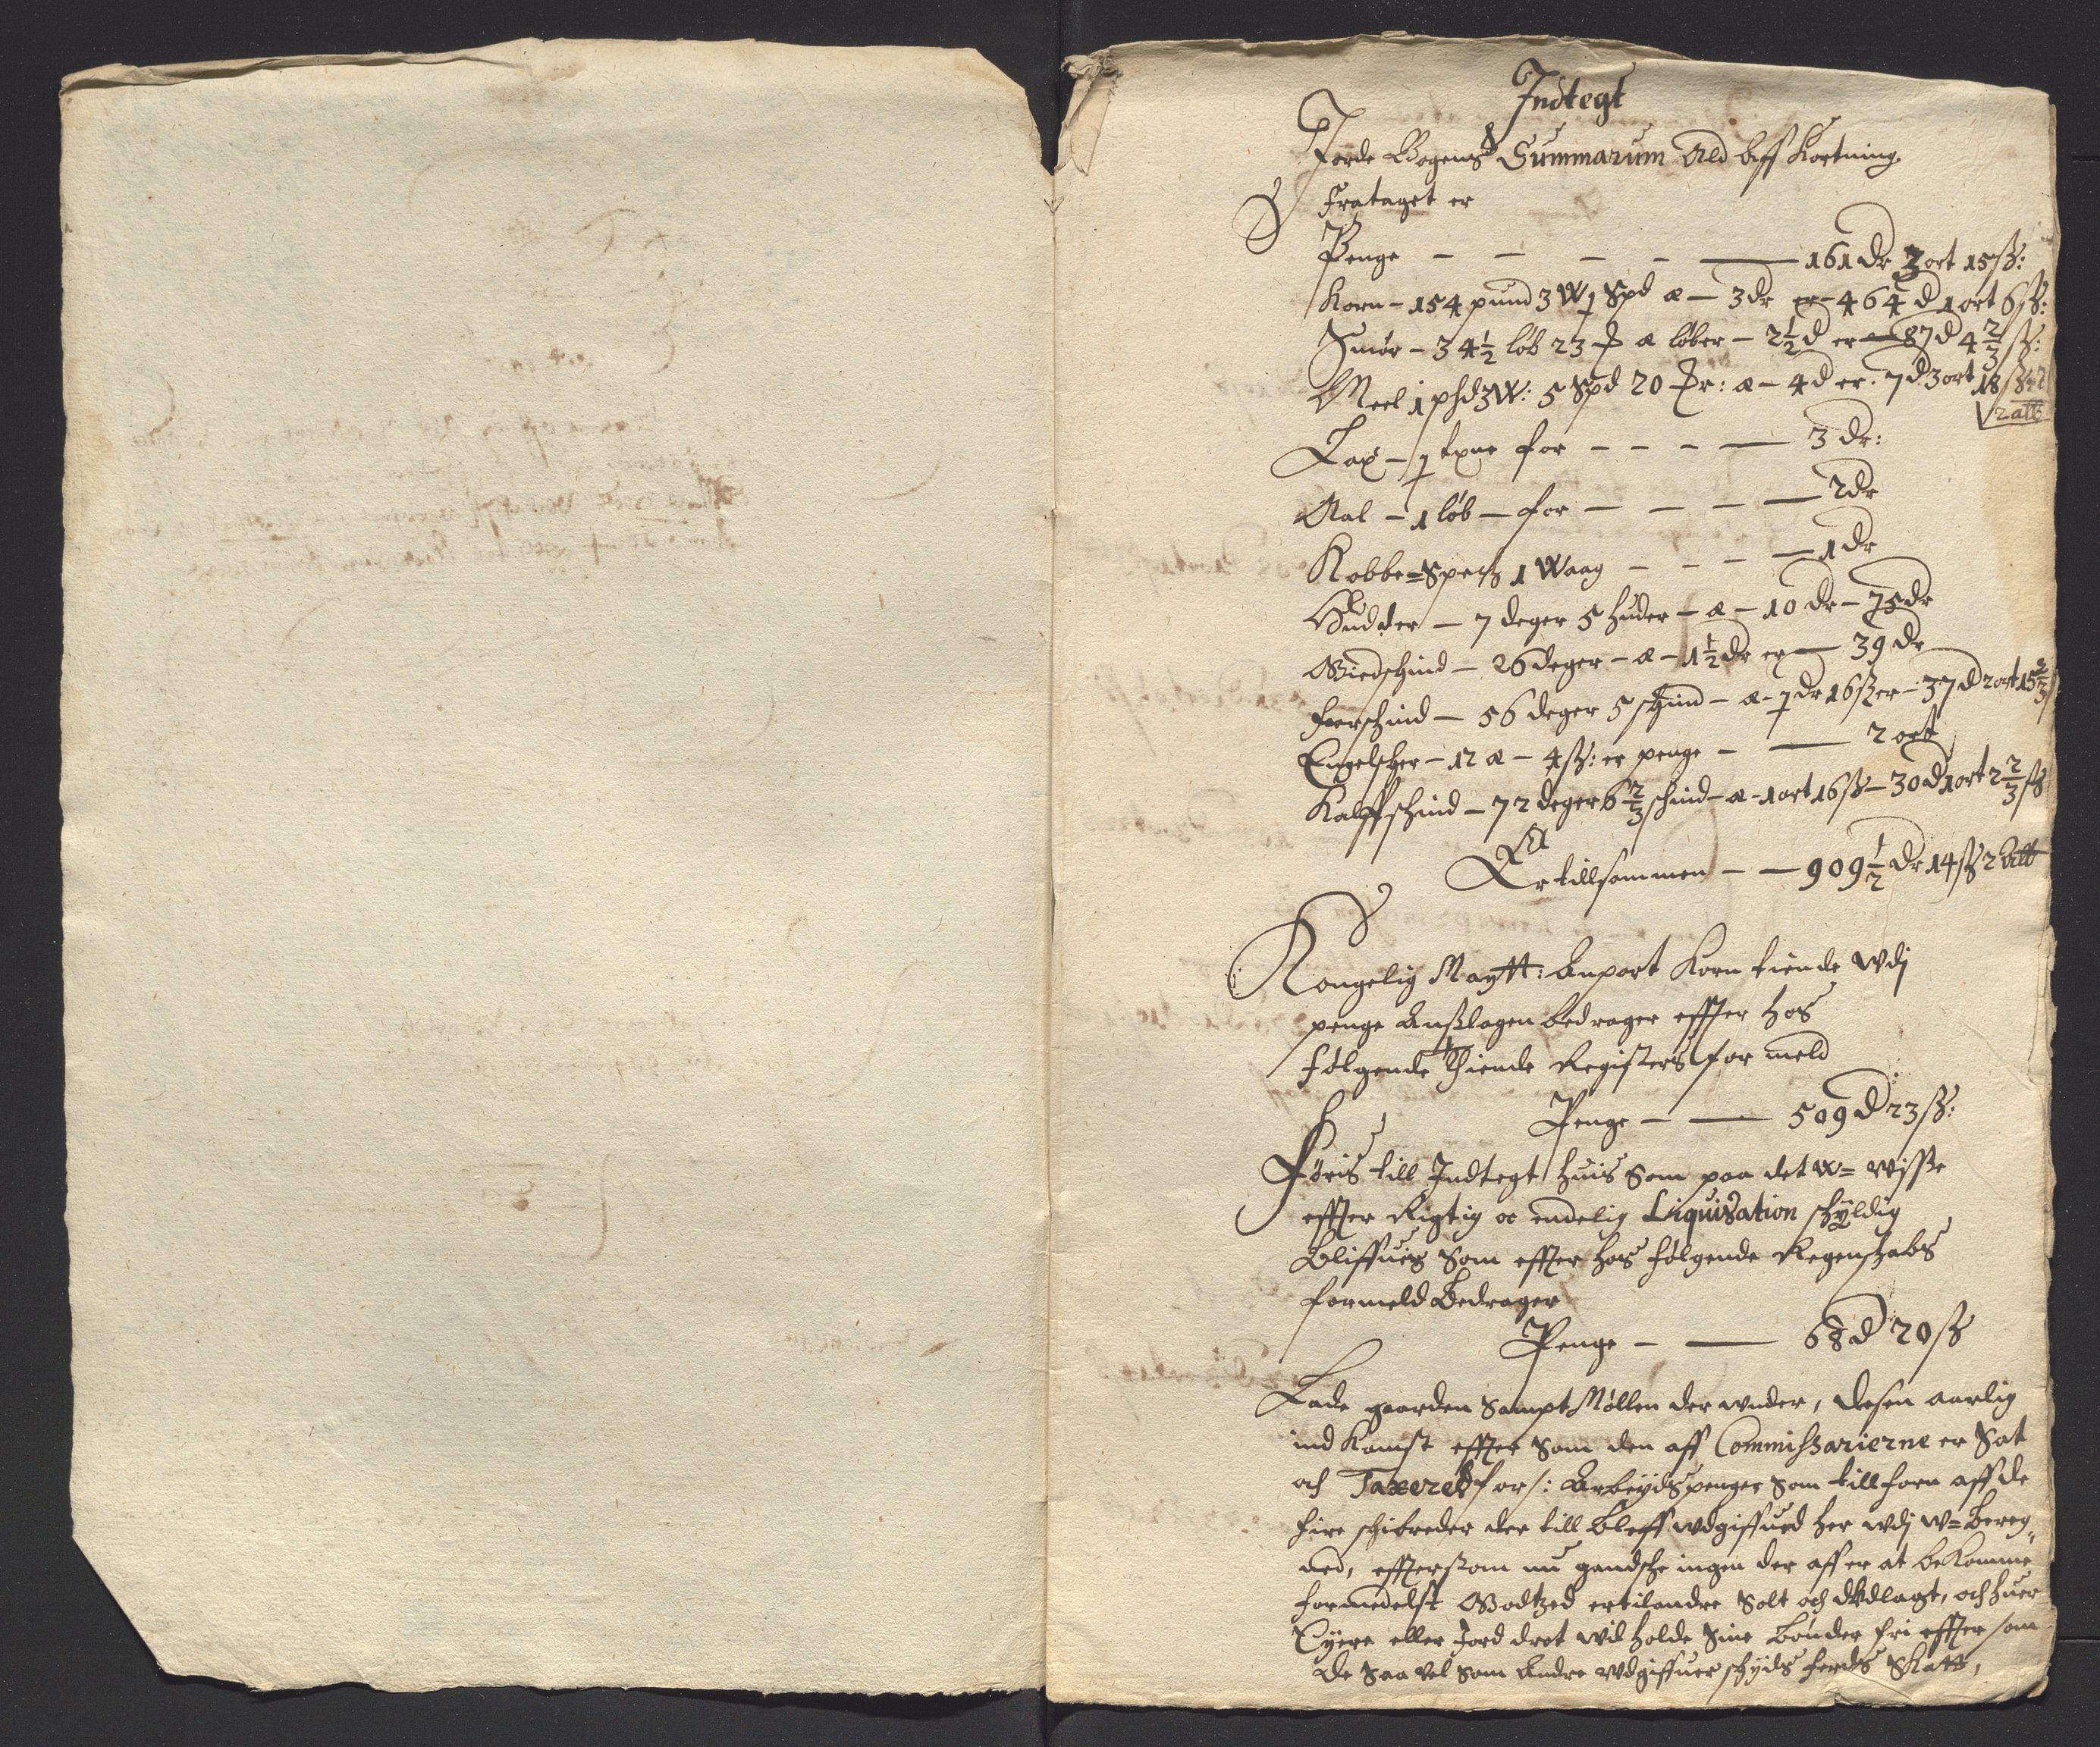 Indtegt
Jorde Bogens Summarum Ald Aff Kortning
Frataget er
Penge — — — — — 161 dr 3 ort 15 ß:
Korn – 154 pund 3 W 1 Spd a – 3 dr er – 464 d 1 ort 6 ß:
Smør – 34½ løb 23 a løber – 2½ d er – 87 d 4⅔ ß:
Meel 1 phd 3 W: 5 Spd 20 r: a – 4 d er. 7 d 3 ort 18 ß
2 alb
Lax – 1 tynne for – – – — 3 dr:
Aal – 1 løb – for – – – — 2 dr
Kobbe=Spech 1 Waag – – – — 1 dr
Hudder – 7 deger 5 huder – a – 10 dr – 75 dr
Giedschind – 26 deger – a – 1½ dr er — 39 dr
Forschind – 56 deger 5 schind – a – 1 dr 16 ß er – 37 d 2 ort 15⅔ ß
Engelscher – 12 a – 4 ß: er penge – — 2 ort
Kalffschind – 72 deger 6⅔ schind – a – 1 ort 16 ß – 30 d 1 ort 2⅔ ß
Er tillsammen – — 909½ dr 14 ß 2 Alb
Kongelig Maytt: Anpart Korn tiende wdj
penge Anslagen bedrager effter hos
følgende Thiende Registers for meld
Penge – — 509 d 23 ß:
Føris till Indtegt huis Som paa det w= wisse
effter Rigtig oc endelig Liquidation schyldig
Bliffues Som effter hos følgende Regenschabs
formeld Bedrager
Penge – — 68 d 20 ß
Lade gaarden Sampt Møllen der wnder, desen aarlig
ind Komst effter Som den aff Commissarierne er Sat
och Taxered for /: Arbeyds penger Som tillforn aff de
fire schibreder der till Bleff wdgiffued her wdj w= Bereg
ned, effterstom nu gandsche ingen der aff er at beKomme
formedelst Godtzed er tilandre Solt och affdlagt, och huer
Eyere eller Jord drot wil holde Sine Bønder fri effter som
de Saa vel Som Andre wdgiffuer schyds ferds Skatt,